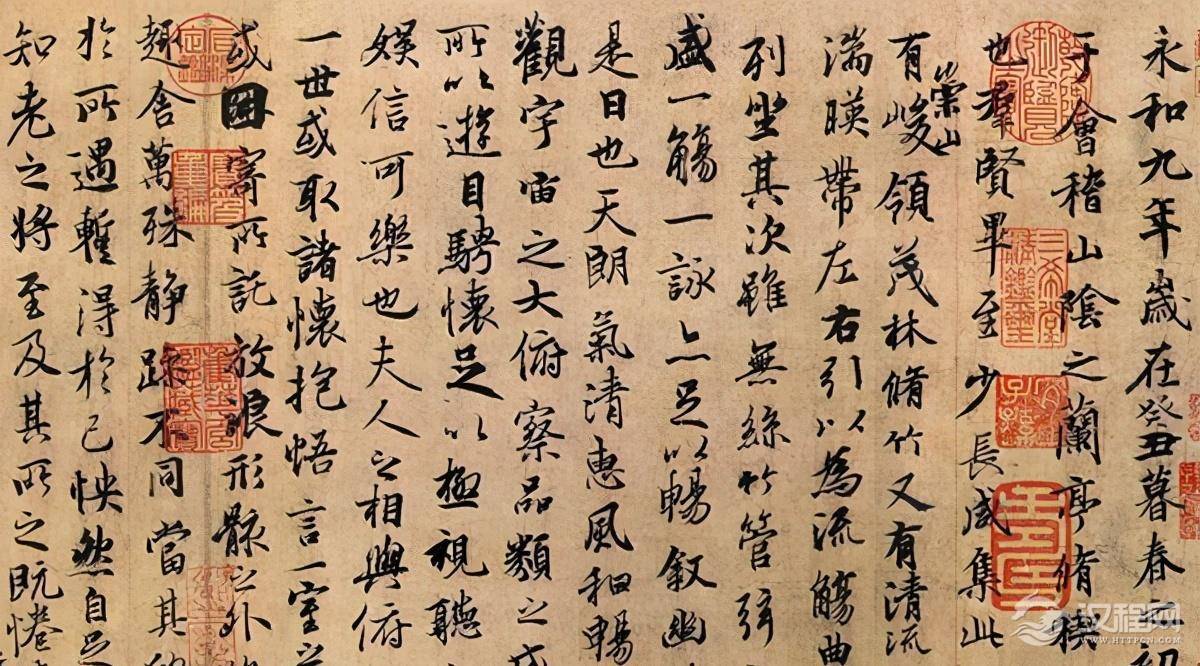 永和九年歲在癸丑暮春之初
于會稽山陰之蘭亭脩稧
也羣賢畢至少長咸集此
有崇山峻領茂林脩竹又有清流
湍暎帶左右引以為流觴曲
列坐其次雖無絲竹管弦
盛一觴一詠亦足以暢敘幽
是日也天朗氣清惠風和暢
觀宇宙之大俯察品類之盛
所以遊目騁懷足以極視聽
娛信可樂也夫人之相與俯
一世或取諸懷抱悟言一室之
或因寄所託放浪形骸之外
趣舍萬殊靜躁不同當其欣
於所遇蹔得於己怏然自足
知老之將至及其所之既惓
汉程网
WWW.HTTPCN.COM